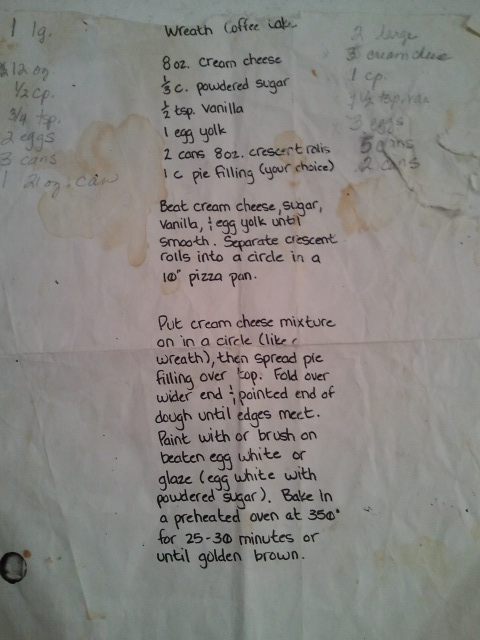 Wreath Coffee Cake
8 oz. cream cheese
1/3 c. powdered sugar
1/2 tsp. vanilla
1 egg yolk
2 cans 8oz. crescent rolls
1 c pie filling (your choice)
Beat cream cheese, sugar,
vanilla, & egg yolk until
smooth. Separate crescent
rolls into a circle in a
10" pizza pan.
Put cream cheese mixture
on in a circle (like
wreath), then spread pie
filling over top. Fold over
wider end & pointed end of
dough until edges meet.
Paint with or brush on
beaten egg white or
glaze (egg white with
powdered sugar). Bake in
a preheated oven at 350°
for 25-30 minutes or
until golden brown.
1 lg.
12 oz
1/2 cp.
3/4 tsp.
2 eggs
3 cans
1 21 oz. can
2 large
3 cream cheese
1 cp.
1/2 tsp. van
3 eggs
5 cans
2 cans